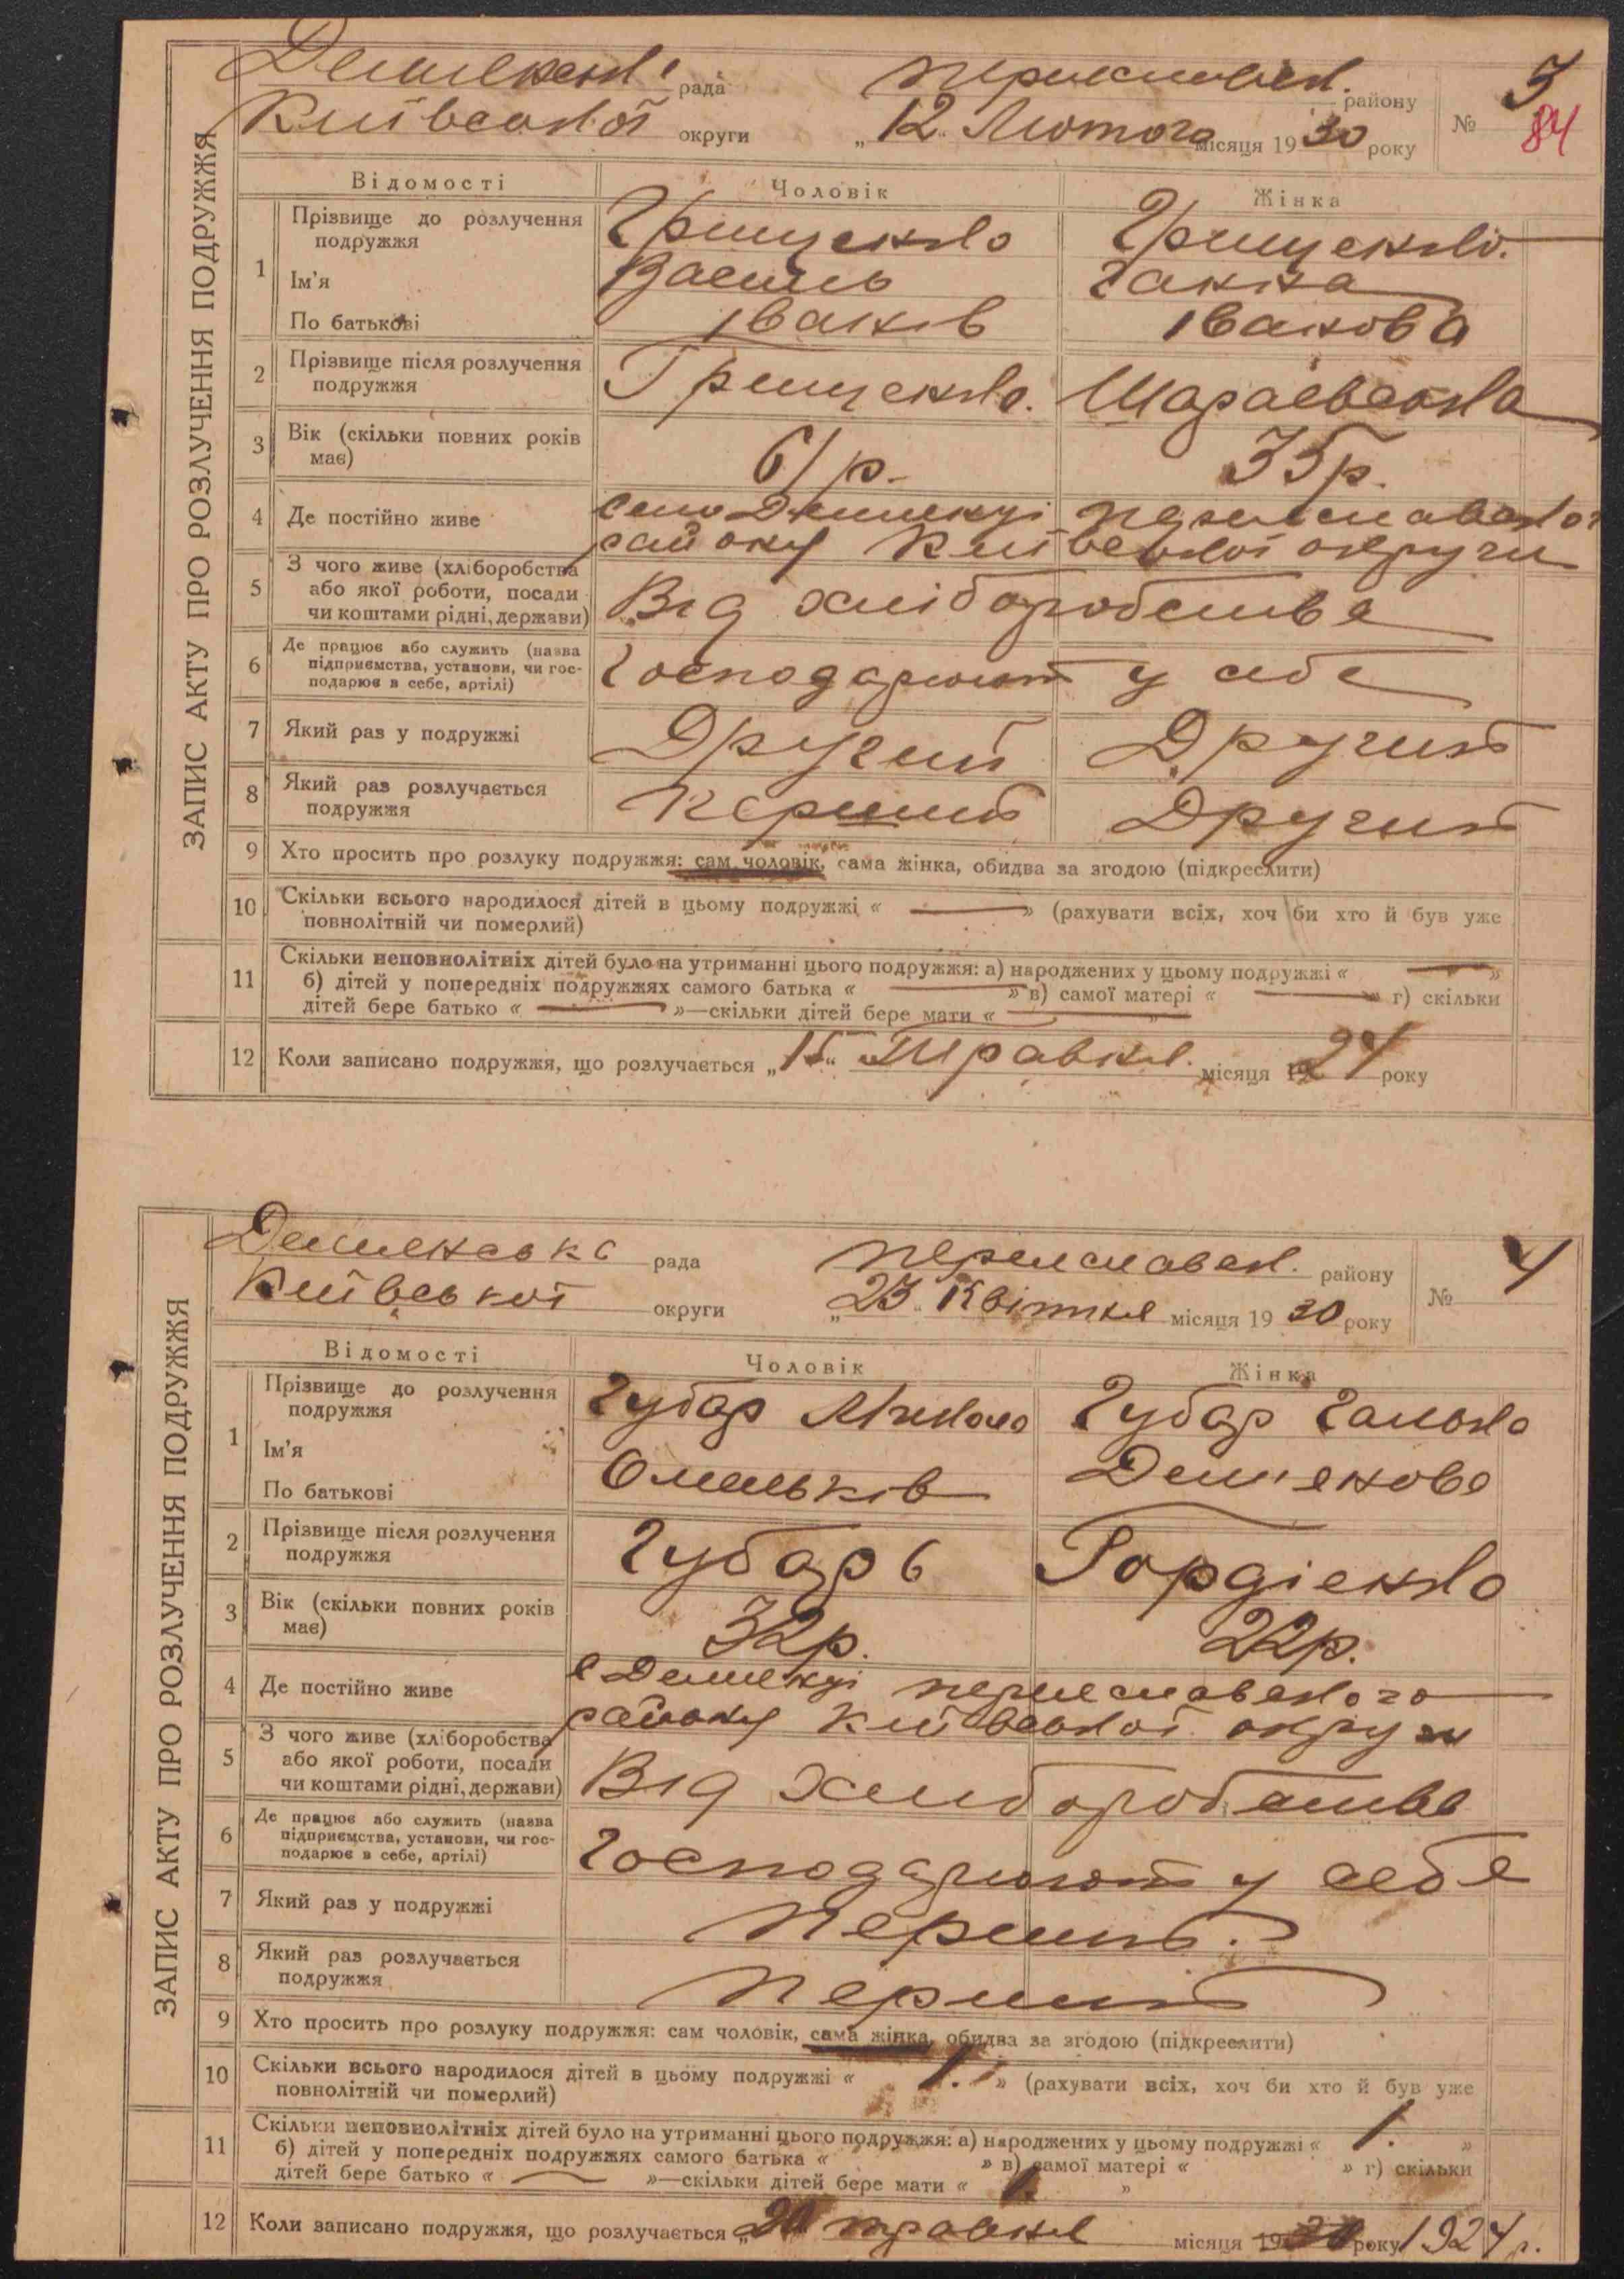 ЗАПИС АКТУ ПРО РОЗЛУЧЕННЯ ПОДРУЖЖЯ
рада Переяславськ. району № 3
Київської округи „12„ Лютого місяця 1930 року 84
Відомості Чоловік Жінка
1 Прізвище до розлучення подружжя Грищенко Грищенко.
Ім'я Василь Ганна
По батькові Іванів Іванова
2 Прізвище після розлучення подружжя Грищенко. Шараевська
3 Вік (скільки повних років має) 61 р. 35 р.
4 Де постійно живе село Демченці Переяславського
району Київської округи
5 З чого живе (хліборобства або якої роботи, посади чи коштами рідні, держави) Від хліборобства
6 Де працює або служить (назва підприємства, установи, чи господарює в себе, артілі) Господарюют у себе
7 Який раз у подружжі Другий Другий
8 Який раз розлучається подружжя Перший Другий
9 Хто просить про розлуку подружжя: сам чоловік, сама жінка, обидва за згодою (підкреслити)
10 Скільки всього народилося дітей в цьому подружжі « — » (рахувати всіх, хоч би хто й був уже
повнолітній чи померлий)
11 Скільки неповнолітніх дітей було на утриманні цього подружжя: а) народжених у цьому подружжі « — »
б) дітей у попередніх подружжях самого батька « — » в) самої матері « — » г) скільки
дітей бере батько « — »—скільки дітей бере мати « — »
12 Коли записано подружжя, що розлучається „15„ Травня місяця 1924 року
ЗАПИС АКТУ ПРО РОЗЛУЧЕННЯ ПОДРУЖЖЯ
рада Переяславськ. району № 4
Київської округи „23„ Квітня місяця 1930 року
Відомості Чоловік Жінка
1 Прізвище до розлучення подружжя Губар Микола Губар Галька
Ім'я
По батькові Омельків Дем'янова
2 Прізвище після розлучення подружжя Губарь Гордіенко
3 Вік (скільки повних років має) 32 р. 22 р.
4 Де постійно живе с Демченці Переяславського
району Київської округи
5 З чого живе (хліборобства або якої роботи, посади чи коштами рідні, держави) Від хлиборобства
6 Де працює або служить (назва підприємства, установи, чи господарює в себе, артілі) Господарюют у себе
7 Який раз у подружжі Перший.
8 Який раз розлучається подружжя Перший
9 Хто просить про розлуку подружжя: сам чоловік, сама жінка, обидва за згодою (підкреслити)
10 Скільки всього народилося дітей в цьому подружжі « 1. » (рахувати всіх, хоч би хто й був уже
повнолітній чи померлий)
11 Скільки неповнолітніх дітей було на утриманні цього подружжя: а) народжених у цьому подружжі « 1. »
б) дітей у попередніх подружжях самого батька « » в) самої матері « » г) скільки
дітей бере батько « — »—скільки дітей бере мати « 1. »
12 Коли записано подружжя, що розлучається „20„ травня місяця 1930 року 1924 р.